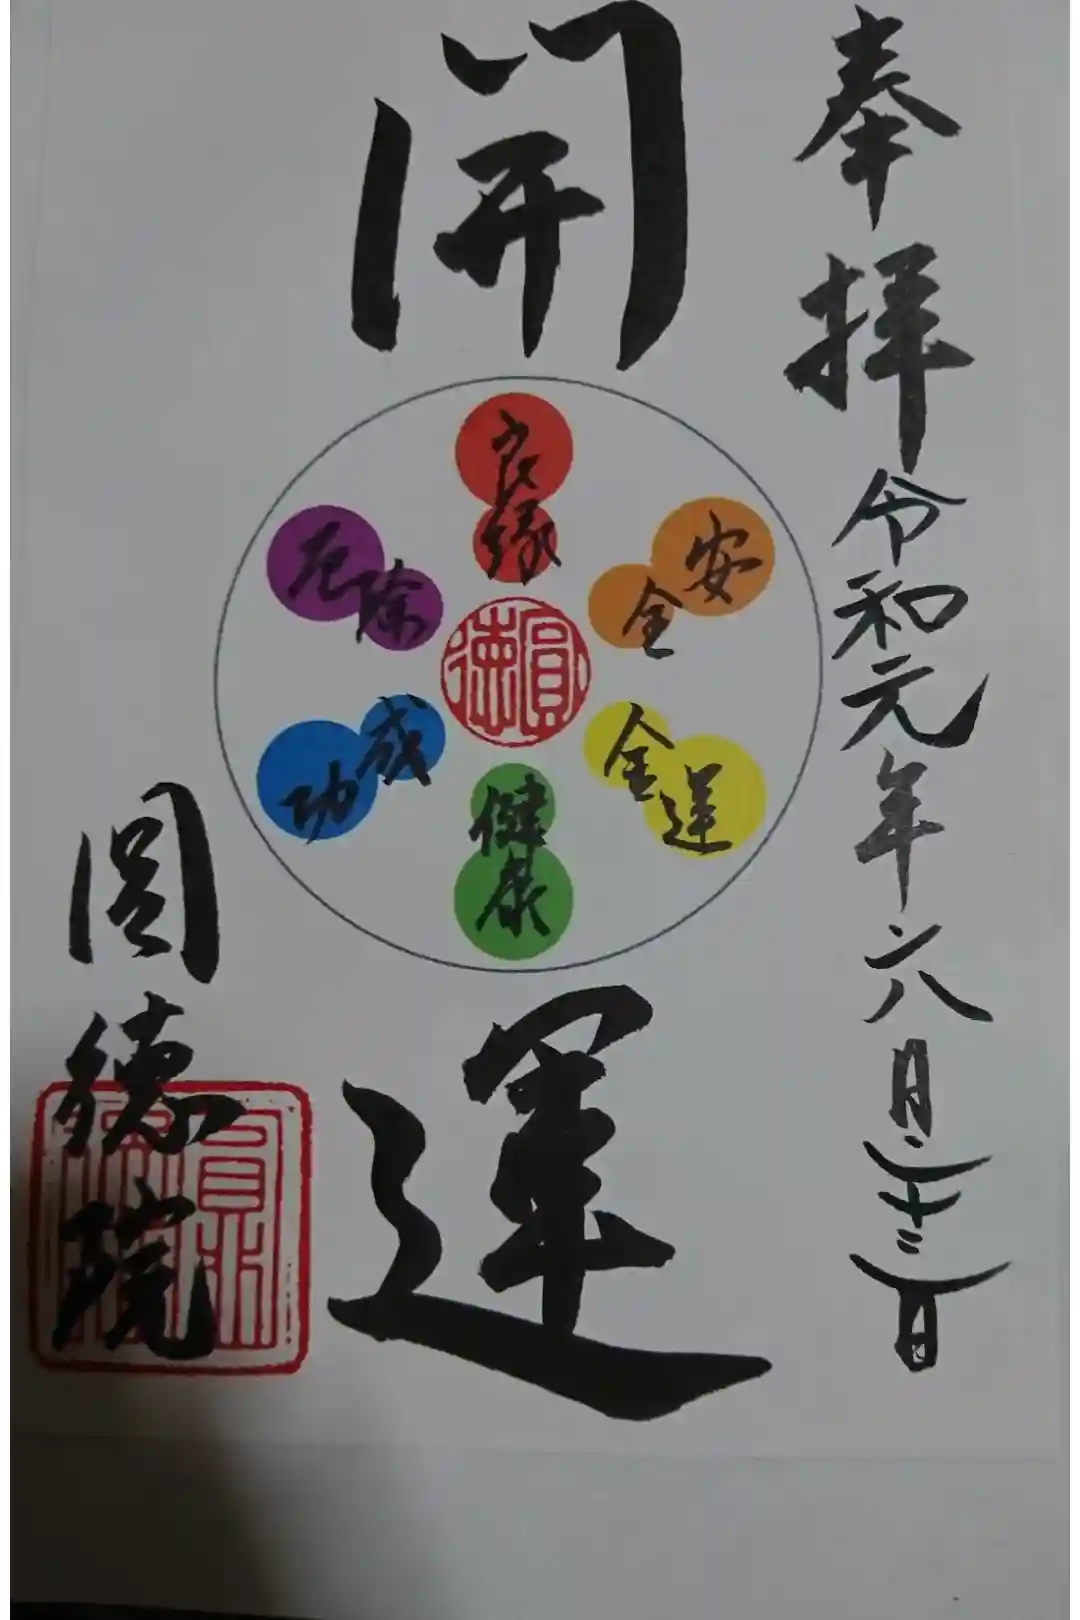 奉拝 令和元年六月二十三日
開
良縁
安全
金運
健康
成功
厄除
圓徳
運
圓徳院